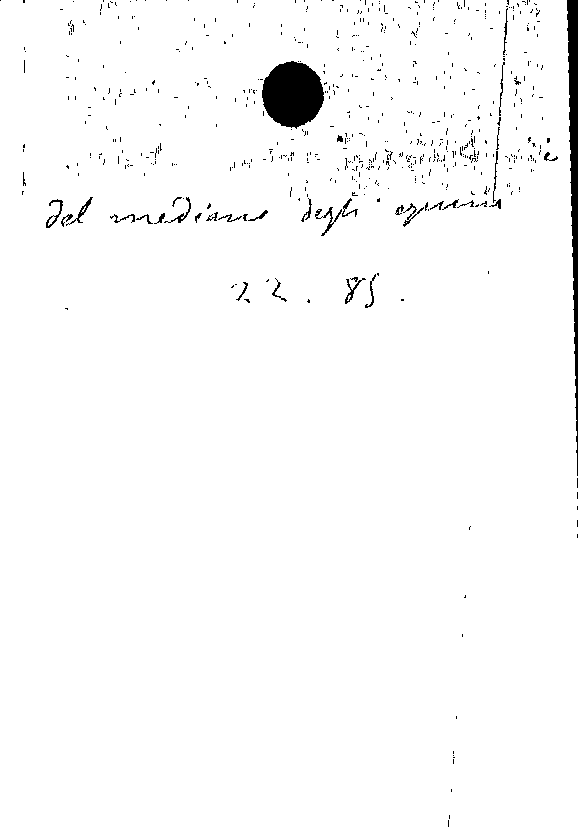 del mediano degli equini
22. 85.